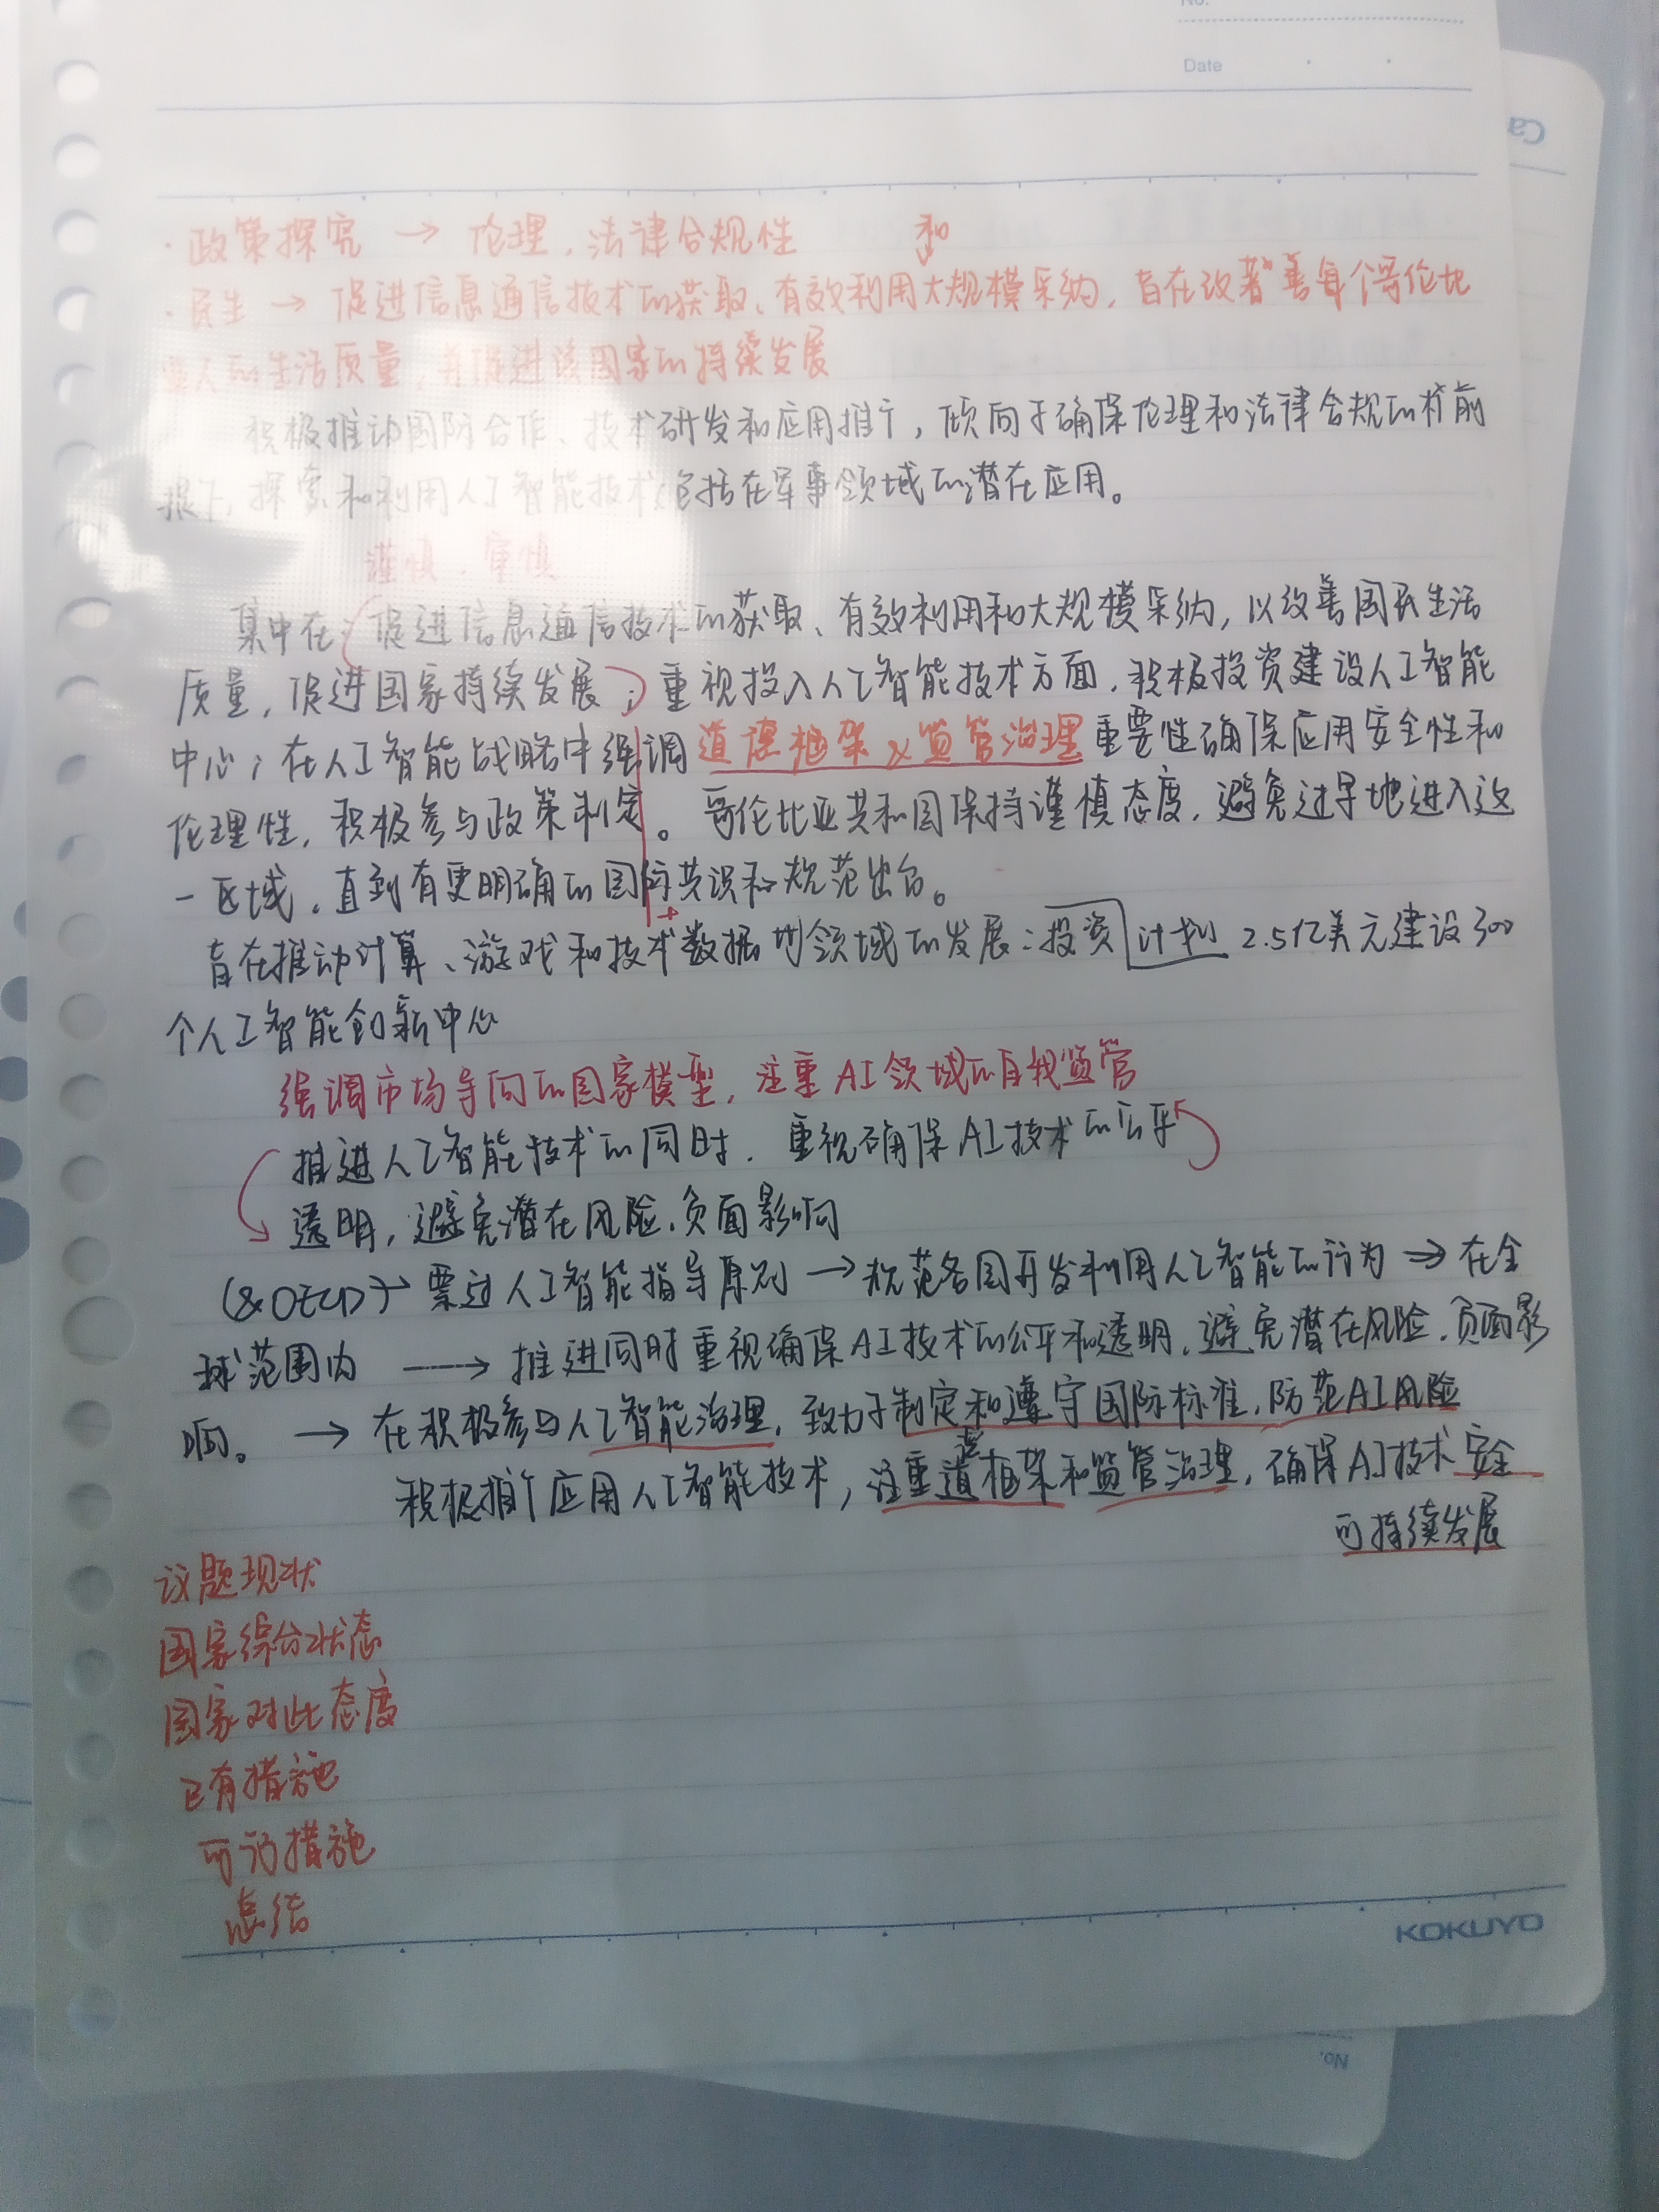 No.
Date
Ca
和
·政策探究 → 伦理，法律合规性
·民生 → 促进信息通信技术的获取、有效利用大规模采纳，旨在改善每个哥伦比
亚人的生活质量，并促进该国家的持续发展
积极推动国际合作、技术研发和应用推广，倾向于确保伦理和法律合规的前
提下，探索和利用人工智能技术包括在军事领域的潜在应用。
谨慎、审慎
集中在：促进信息通信技术的获取、有效利用和大规模采纳，以改善国民生活
质量，促进国家持续发展；重视投入人工智能技术方面，积极投资建设人工智能
中心；在人工智能战略中强调道德框架&监管治理重要性确保应用安全性和
伦理性，积极参与政策制定。哥伦比亚共和国保持谨慎态度，避免过早地进入这
一区域，直到有更明确的国际共识和规范出台。
旨在推动计算、游戏和技术数据的领域的发展：投资计划 2.5亿美元建设300
个人工智能创新中心
强调市场导向的国家模型，注重AI领域的自我监管
推进人工智能技术的同时，重视确保AI技术的公平
透明，避免潜在风险、负面影响
(&OECD)→ 票过人工智能指导原则 → 规范各国开发利用人工智能的行为 → 在全
球范围内 → 推进同时重视确保AI技术的公平和透明，避免潜在风险、负面影
响。 → 在积极参与人工智能治理，致力于制定和遵守国际标准，防范AI风险
积极推广应用人工智能技术，注重道德框架和监管治理，确保AI技术安全
可持续发展
议题现状
国家综合状态
国家对此态度
已有措施
可行措施
总结
KOKUYO
No.